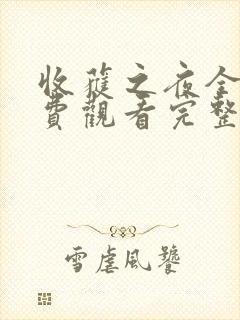 收穫之夜全
費觀看完整
雪虐風饕